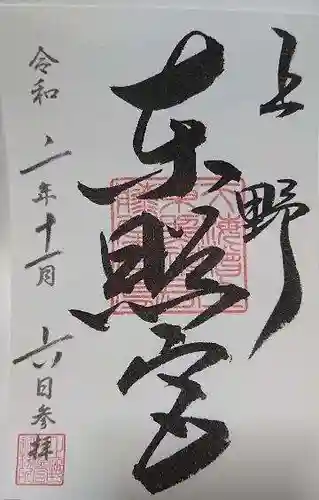 上野
東照宮
令和二年十一月
六日参拝